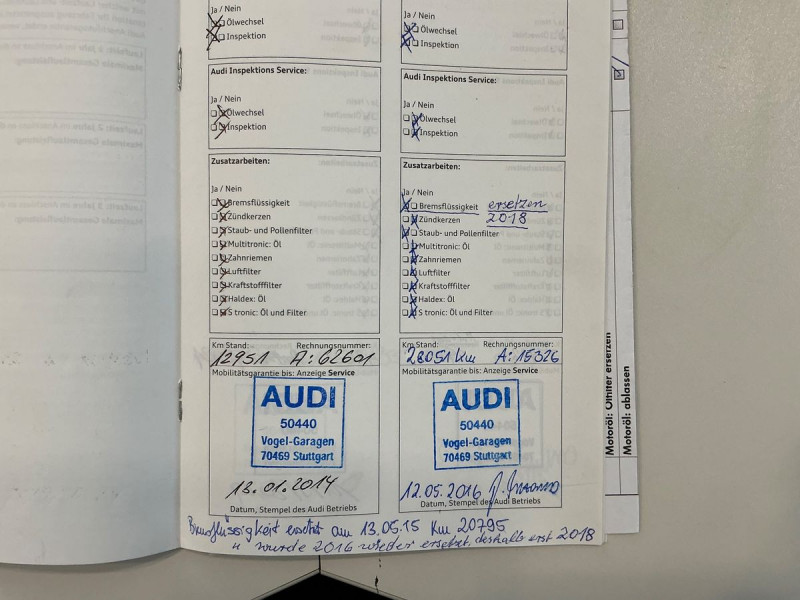 Ja / Nein
Ölwechsel
Inspektion
Audi Inspektions Service:
Ja / Nein
Ölwechsel
Inspektion
Zusatzarbeiten:
Ja / Nein
Bremsflüssigkeit
Zündkerzen
Staub- und Pollenfilter
Multitronic: Öl
Zahnriemen
Luftfilter
Kraftstofffilter
Haldex: Öl
S tronic: Öl und Filter
Km Stand: Rechnungsnummer:
12951 A: 62601
Mobilitätsgarantie bis: Anzeige Service
AUDI
50440
Vogel-Garagen
70469 Stuttgart
13.01.2014
Datum, Stempel des Audi Betriebs
Ja / Nein
Ölwechsel
Inspektion
Audi Inspektions Service:
Ja / Nein
Ölwechsel
Inspektion
Zusatzarbeiten:
Ja / Nein
Bremsflüssigkeit ersetzen
Zündkerzen 2018
Staub- und Pollenfilter
Multitronic: Öl
Zahnriemen
Luftfilter
Kraftstofffilter
Haldex: Öl
S tronic: Öl und Filter
Km Stand: Rechnungsnummer:
28051 Km A: 15326
Mobilitätsgarantie bis: Anzeige Service
AUDI
50440
Vogel-Garagen
70469 Stuttgart
12.05.2016
Datum, Stempel des Audi Betriebs
Bremsflüssigkeit ersetzt am 13.05.15 Km 20795
" wurde 2016 wieder ersetzt. deshalb erst 2018
Motoröl: Ölfilter ersetzen
Motoröl: ablassen